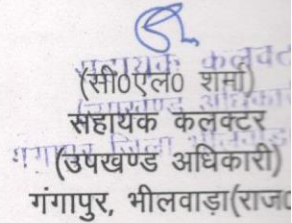 (सी0एल0 शर्मा)
सहायक कलक्टर
(उपखण्ड अधिकारी)
गंगापुर, भीलवाड़ा(राज0